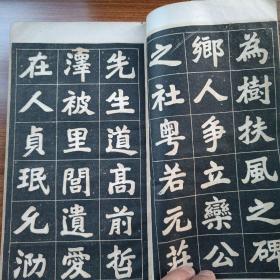 為樹扶風之碑
鄉人爭立欒公
之社粵若元莊
先生道高前哲
澤被里閭遺愛
在人貞珉允泐